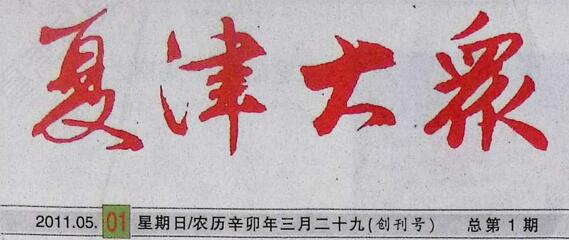 夏津大眾
2011.05.01 星期日/农历辛卯年三月二十九(创刊号) 总第1期